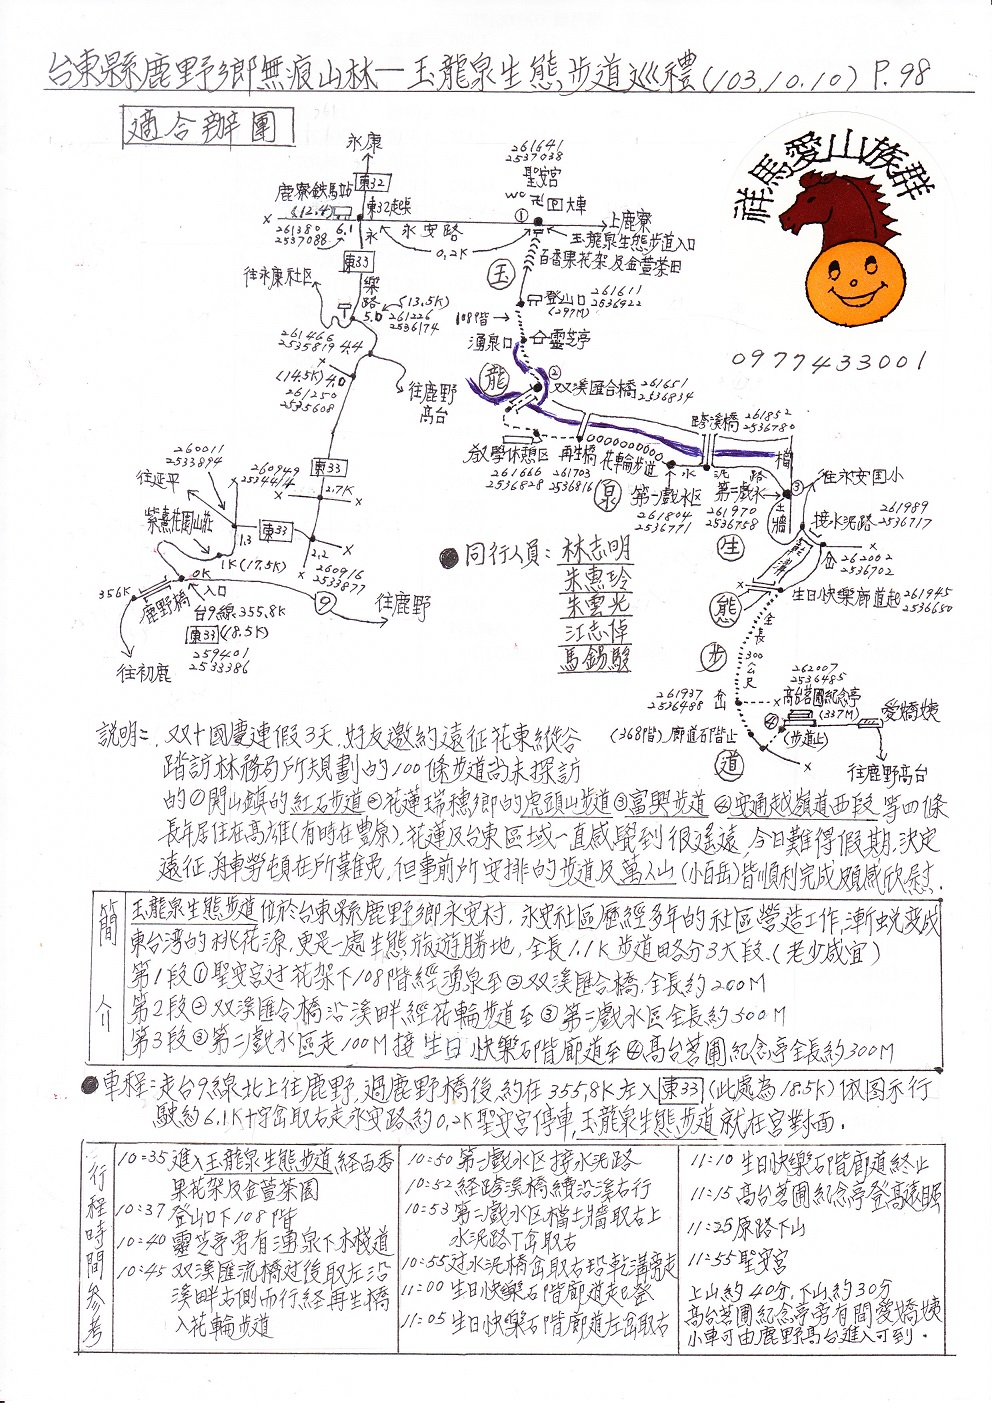 台東縣鹿野鄉無痕山林—玉龍泉生態步道巡禮(103.10.10) P.98
適合辦團
祥馬愛山族群
0977433001
永康
東32
鹿寮鐵馬站
(12.4)
東32起點
261380
2537088
6.1
永安路
0.2K
261641
2537038
聖安宮
WC 卍 回大車
①
上鹿寮
玉龍泉生態步道入口
百香果花架及金萱茶田
永
東33
樂
路
往永康社区
5.0
(13.5K)
261226
2536174
261466
2535819
4.4
(14.5K)
4.0
261250
2535608
往鹿野
高台
玉
登山口
(297M)
261611
2536922
108階
湧泉口
靈芝亭
龍
②
双溪匯合橋
261651
2536834
教學休憩区
261666
2536828
再生橋
261703
2536816
花輪步道
泉
跨溪橋
261852
2536780
第一戲水区
261804
2536771
水泥路
第二戲水
261970
2536758
③
擋
土牆
往永安国小
接水泥路
261989
2536717
生
乾溝
岔
262002
2536702
態
生日快樂廊道起
261945
2536650
全長300公尺
步
261937
2536488
岔
262007
2536485
高台茗圃紀念亭
(337M)
④
(步道止)
愛嬌姨
(368階)廊道石階止
道
往鹿野高台
260011
2533894
往延平
紫熹花園山莊
260949
2534414
東33
2.7K
1.3
東33
2.2
260916
2533877
1K(17.5K)
356K
0K
入口
鹿野橋
台9線355.8K
東33(18.5K)
259401
2533386
9
往鹿野
往初鹿
●同行人員:林志明
朱惠玲
朱雲光
江志偉
馬錫駿
説明:.双十國慶連假3天.好友邀約遠征花東縱谷
踏訪林務局所規劃的100條步道尚未探訪
的①關山鎮的紅石步道②花蓮瑞穗鄉的虎頭山步道③富興步道④安通越嶺道西段等四條
長年居住在高雄(有時在豊原),花蓮及台東區域一直感覺到很遙遠.今日難得假期.決定
遠征.舟車勞頓在所難免,但事前所安排的步道及萬人山(小百岳)皆順利完成頗感欣慰.
簡介
玉龍泉生態步道位於台東縣鹿野鄉永安村.永安社區歷經多年的社區營造工作,漸蛻變成
東台湾的桃花源.更是一處生態旅遊勝地,全長1.1K步道略分3大段.(老少咸宜)
第1段①聖安宮过花架下108階經湧泉至②双溪匯合橋.全長約200M
第2段②双溪匯合橋沿溪畔經花輪步道至③第二戲水區全長約500M
第3段③第二戲水區走100M接生日快樂石階廊道至④高台茗圃紀念亭全長約300M
●車程:走台9線北上往鹿野.過鹿野橋後約在355.8K左入東33(此處為18.5K)依图示行
駛約6.1K十字岔取右走永安路約0.2K聖安宮停車,玉龍泉生態步道就在宮對面.
行程時間參考
10:35進入玉龍泉生態步道経百香
果花架及金萱茶園
10:37登山口下108階
10:40靈芝亭旁有湧泉下木棧道
10:45双溪匯流橋过後取左沿
溪畔右側而行經再生橋
入花輪步道
10:50第一戲水区接水泥路
10:52経跨溪橋續沿溪右行
10:53第二戲水区擋土牆取右上
水泥路丁岔取右
10:55过水泥橋岔取右沿乾溝旁走
11:00生日快樂石階廊道起登
11:05生日快樂石階廊道左岔取右
11:10生日快樂石階廊道終止
11:15高台茗圃紀念亭登高遠眺
11:25原路下山
11:55聖安宮
上山約40分,下山約30分
高台茗圃紀念亭旁有間愛嬌姨
小車可由鹿野高台進入可到.